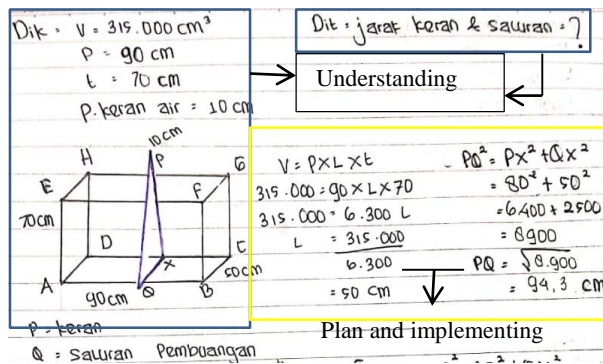 Dik : V = 315.000 cm³
P = 90 cm
t = 70 cm
P. keran air = 10 cm
Dit : jarak keran & saluran = ?
Understanding
10 cm
P
H
G
E
F
70 cm
D
C
X
50 cm
A
Q
B
90 cm
V = P x L x t
315.000 = 90 x L x 70
315.000 = 6.300 L
L = 315.000
6.300
= 50 cm
PQ² = PX² + QX²
= 80² + 50²
= 6400 + 2500
= 8900
PQ = √8.900
= 94,3 cm
Plan and implementing
P = keran
Q = saluran Pembuangan